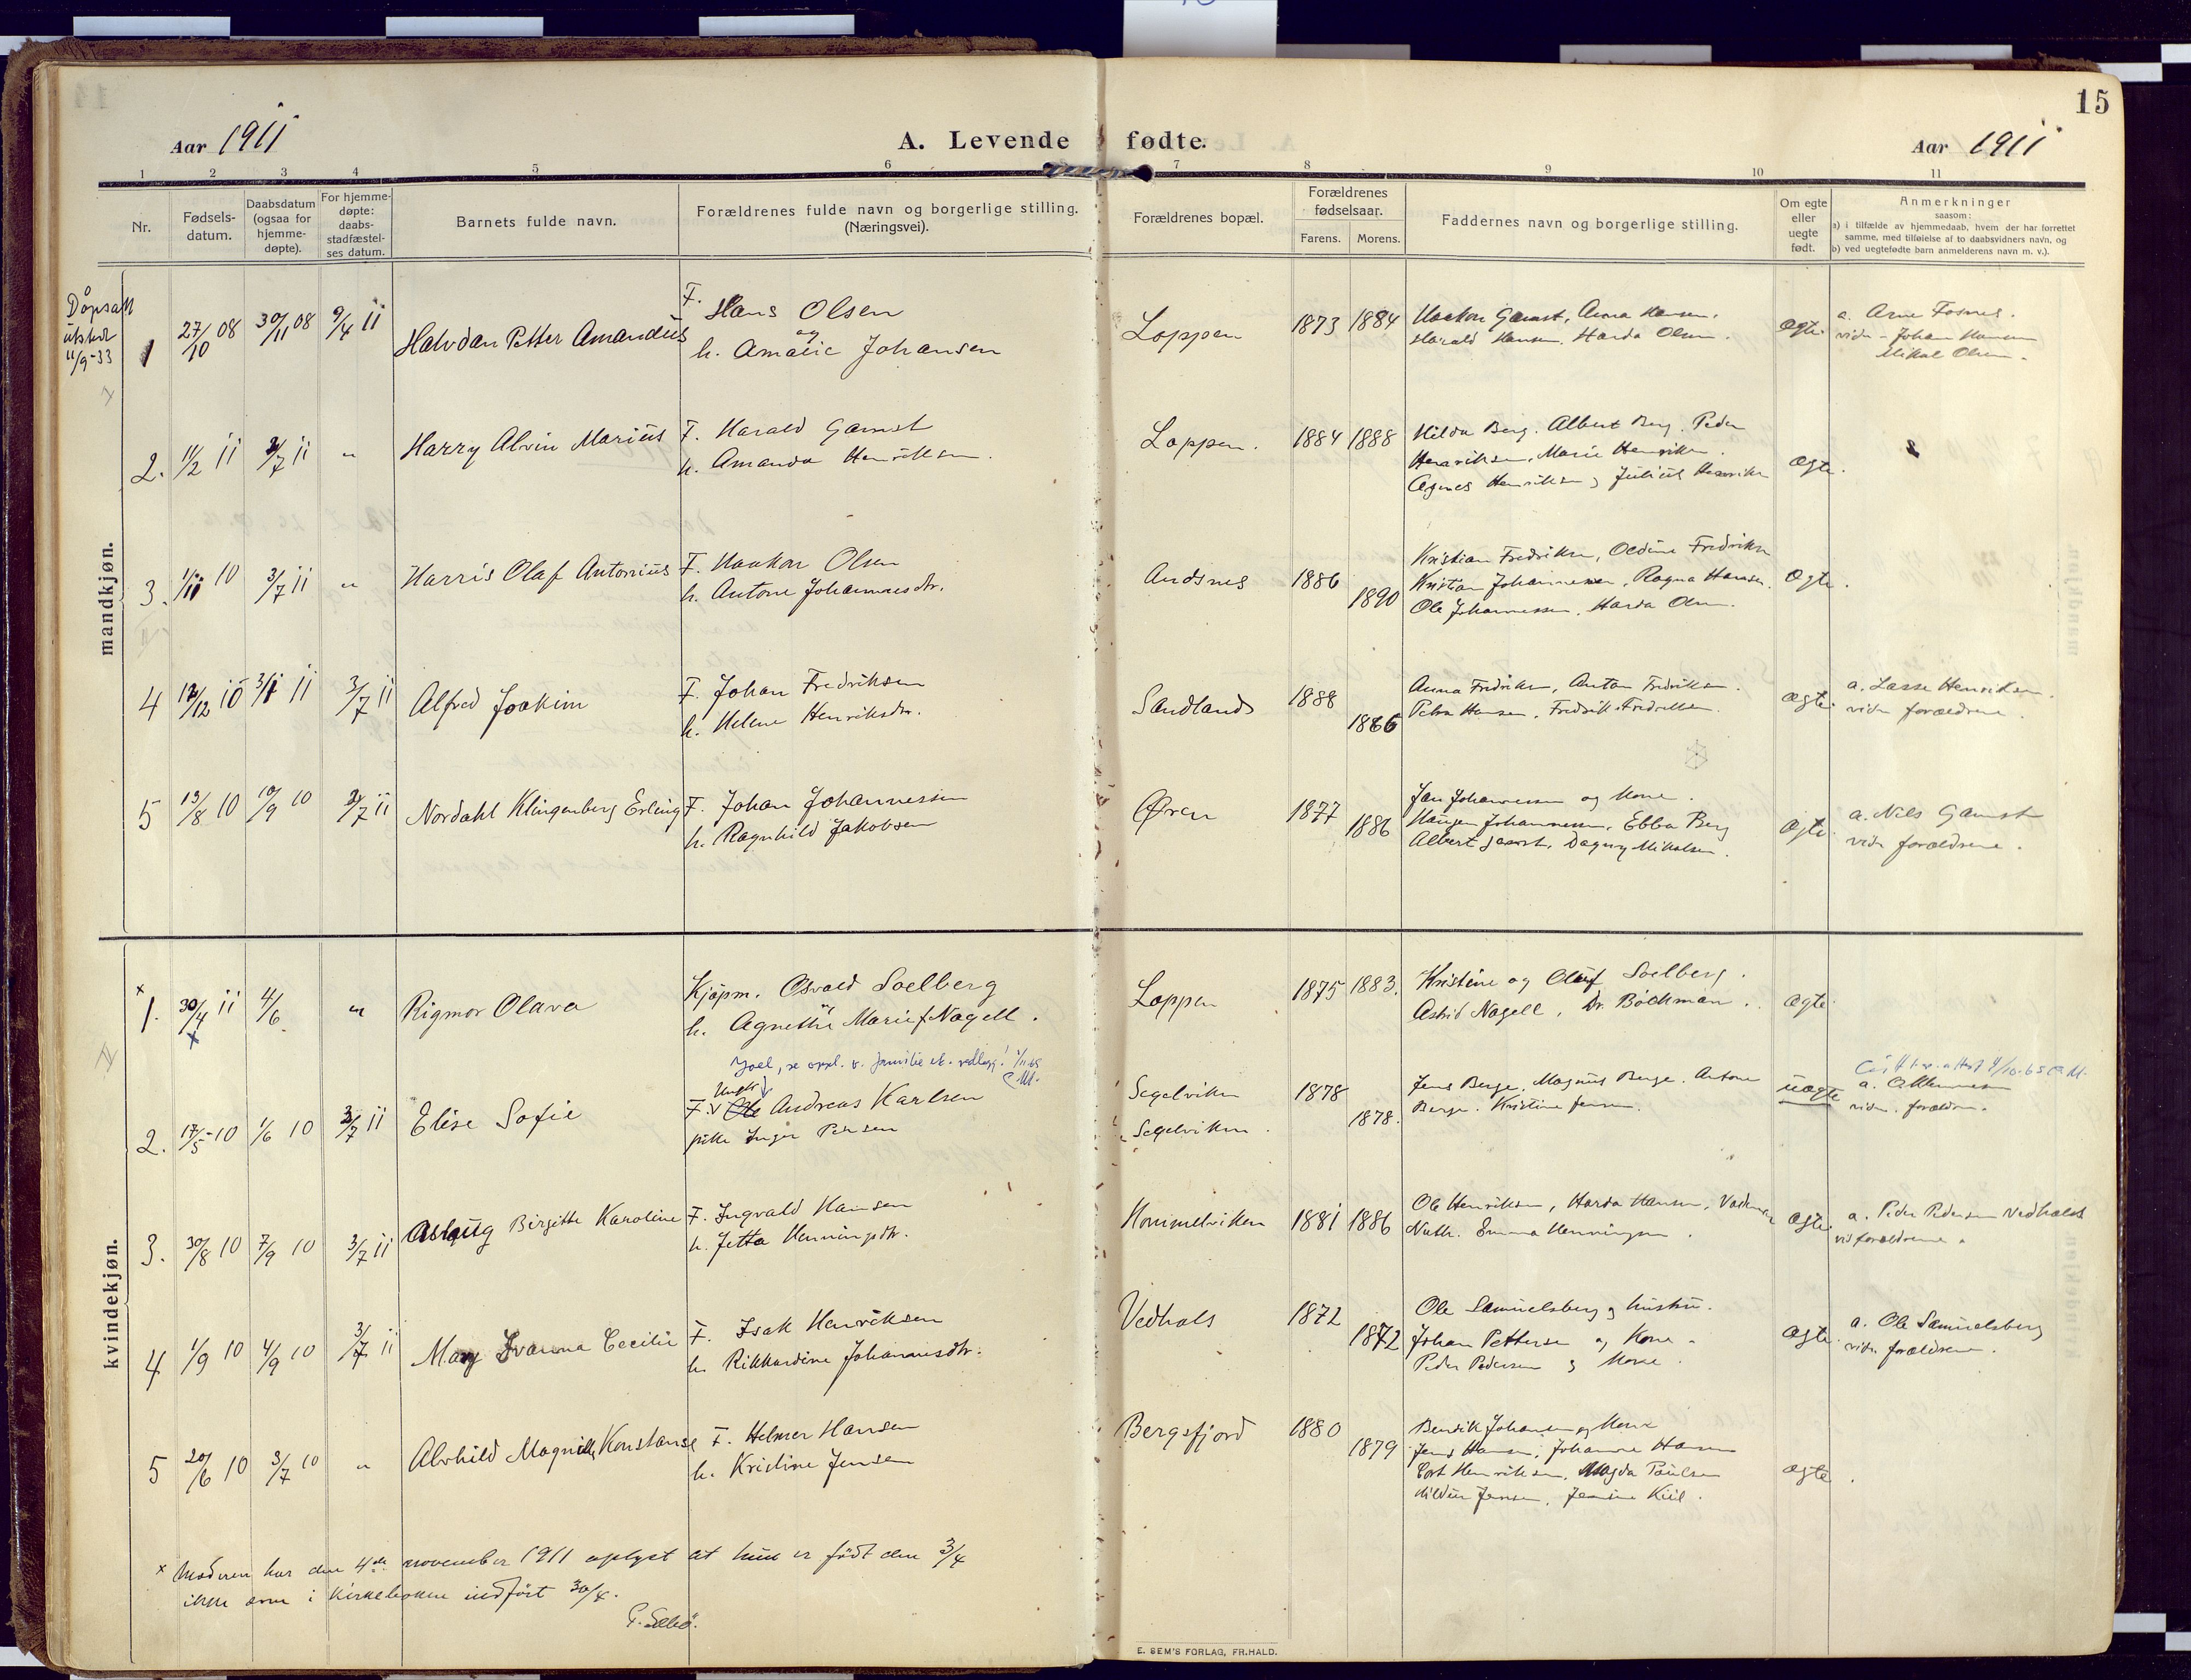 15
Aar 1911
A. Levende fødte.
Aar 1911
1 2 3 4 5 6 7 8 9 10 11
Nr.
Fødsels-
datum.
Daabsdatum
(ogsaa for
hjemme-
døpte).
For hjemme-
døpte:
daabs-
stadfæstel-
ses datum.
Barnets fulde navn.
Forældrenes fulde navn og borgerlige stilling.
(Næringsvei).
Forældrenes bopæl.
Forældrenes
fødselsaar.
Farens. Morens.
Faddernes navn og borgerlige stilling.
Om egte
eller
uegte
født.
Anmerkninger
saasom:
a) i tilfælde av hjemmedaab, hvem der har forrettet
samme, med tilføielse af to daabsvidners navn, og
b) ved uegtefødte barn anmelderens navn m. v.).
mandkjøn.
Døpsatt
utstedt
11/9-33
1 27/10 08 30/11 08 9/4 11 Halvdan Petter Amandus
F. Hans Olsen
og
h. Amalie Johansen
Loppen 1873 1884
Haakon Gamst, Anna Hansen,
Harald Hansen, Harda Olsen.
ægte.
a. Arne Fosnes.
vidn - Johan Hansen
Mikal Olsen.
2. 11/2 11 2/7 11 " Harry Alvin Marius
F. Harald Gamst
h. Amanda Henriksen.
Loppen. 1884 1888
Hilda Berg. Albert Berg. Peder
Henriksen, Marie Henriksen.
Agnes Henriksen, Julius Henriksen
ægte.
3. 1/11 10 3/7 11 " Harris Olaf Antonius
F. Haakon Olsen
h. Antone Johannesdtr.
Andsnes 1886 1890
Kristian Fredriksen, Oldine Fredriksen
Kristian Johannesen, Ragna Hansen.
Ole Johannessen, Harda Olsen.
ægte.
4 12/12 10 3/1 11 3/7 11 Alfred Joakim
F. Johan Fredriksen
h. Helene Henriksdtr.
Sandlands 1888 1886
Anna Fredriksen, Anton Fredriksen.
Petra Hansen, Fredrik Fredriksen.
ægte.
a. Lasse Henriksen.
vidn forældrene.
5 13/8 10 10/9 10 2/7 11 Nordahl Klingenberg Erling
F. Johan Johannessen
h. Ragnhild Jakobsen
Øren 1877 1886
Jan Johannessen og Kone.
Haugen Johannessen, Ebba Berg
Albert Gamst, Dagny Mikalsen.
ægte.
a. Nils Gamst
vidn forældrene.
kvindekjøn.
x
1. 30/4 11 4/6 " Rigmor Olava
x
Kjøpm. Osvald Soelberg
h. Agnethe Marie f. Nagell.
Loppen 1875 1883.
Kristine og Oluf Soelberg.
Astrid Nagell, Dr. Bøckman.
ægte.
2. 17/5 10 1/6 10 3/7 11 Elise Sofie
Joel, se oppl. v. familie
F. Andreas Karlsen
pike Inger Persen
Segelviken 1878
Segelviken. 1878.
Jens Berge, Magnus Berge, Antone
Berge. Kristine Jensen.
uægte
vidn. forældre.
3. 30/8 10 7/9 10 3/7 11 Aslaug Birgitte Karoline
F. Ingvald Hansen
h. Jetta Henningsdtr.
Hommelviken 1881 1886
Ole Henriksen, Harda Hansen,
Emma Henningsen.
ægte.
a. Peder Pedersen Vedhals
vid forældrene.
4 1/9 10 4/9 10 3/7 11 Mary Ivanna Cecilie
F. Isak Henriksen
h. Rikkardine Johannesdtr.
Vedhals 1872 1872
Ole Samuelsberg og hustru.
Johan Pettersen og Kone.
Peder Pedersen og Kone.
ægte.
a. Ole Samuelsberg
vidn forældrene.
5 20/6 10 3/7 10 " Alvhild Magnilla Konstanse
F. Helmer Hansen
h. Kristine Jensen
Bergsfjord 1880 1879
Bendik Johansen og Kone
Jens Hansen, Johanne Hansen
Henriksen, Magda Paulsen
Jensen, Jensine Kiil.
ægte.
x Moderen har den 4de november 1911 oplyst at hun er født den 3/4
ikke som i Kirkeboken indført 30/4.
E. SEM'S FORLAG, FR.HALD.